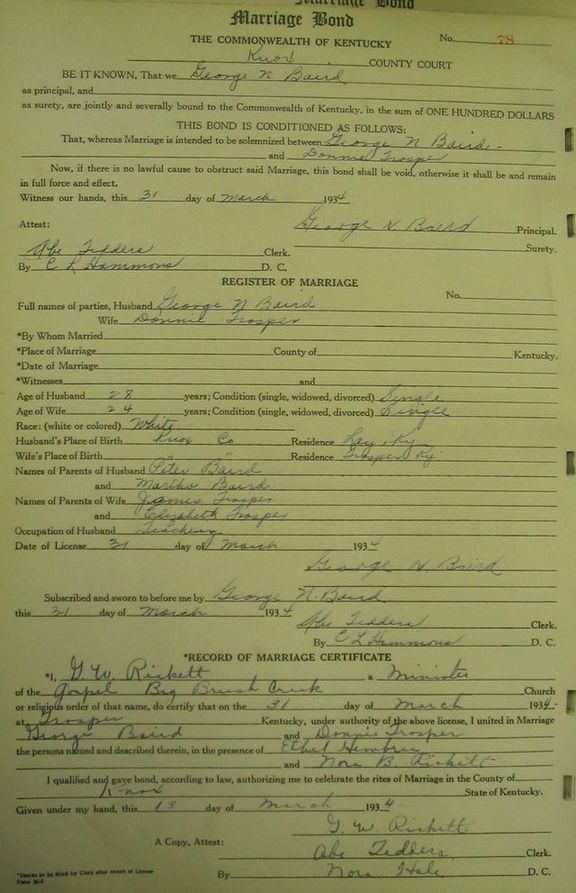 Marriage Bond
Marriage Bond
THE COMMONWEALTH OF KENTUCKY No. 78
Knox COUNTY COURT
BE IT KNOWN, That we George N Baird
as principal, and
as surety, are jointly and severally bound to the Commonwealth of Kentucky, in the sum of ONE HUNDRED DOLLARS
THIS BOND IS CONDITIONED AS FOLLOWS:
That, whereas Marriage is intended to be solemnized between George N Baird
and Donnie Trosper
Now, if there is no lawful cause to obstruct said Marriage, this bond shall be void, otherwise it shall be and remain
in full force and effect.
Witness our hands, this 31 day of March 1934
George N Baird Principal.
Attest: Surety.
Abe Tedders Clerk.
By C L Hammons D. C.
REGISTER OF MARRIAGE
No.
Full names of parties, Husband George N Baird
Wife Donnie Trosper
*By Whom Married
*Place of Marriage County of Kentucky.
*Date of Marriage
*Witnesses and
Age of Husband 28 years; Condition (single, widowed, divorced) Single
Age of Wife 24 years; Condition (single, widowed, divorced) Single
Race: (white or colored) White
Husband's Place of Birth Knox Co Residence Lay, Ky
Wife's Place of Birth " " Residence Trosper Ky.
Names of Parents of Husband Peter Baird
and Martha Baird
Names of Parents of Wife James Trosper
and Elizabeth Trosper
Occupation of Husband Teaching
Date of License 31 day of March 1934
George N. Baird
Subscribed and sworn to before me by George N. Baird
this 31 day of March 1934
Abe Tedders Clerk.
By C L Hammons D. C.
*RECORD OF MARRIAGE CERTIFICATE
*I, G. W. Rickett, a Minister
of the Gospel Big Brush Creek Church
or religious order of that name, do certify that on the 31 day of March 1934
at Trosper Kentucky, under authority of the above license, I united in Marriage
George Baird and Donnie Trosper
the persons named and described therein, in the presence of Ethel Hembree
and Nora B. Rickett
I qualified and gave bond, according to law, authorizing me to celebrate the rites of Marriage in the County of
Knox State of Kentucky.
Given under my hand, this 13 day of March 1934
G. W. Rickett
A Copy, Attest: Abe Tedders Clerk.
By Nora Hale D. C.
*Blanks to be filled by Clerk after return of License